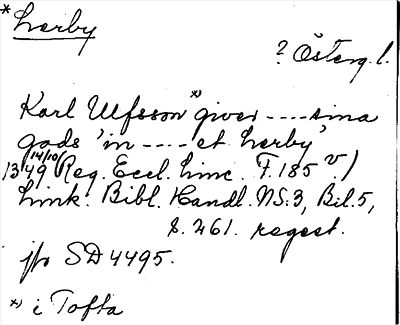 * Lerby
? Österg.l.
Karl Ulfsson *) giver ---- sina
gods 'in ---- et Lerby'
14/10
1349 (Reg. Eccl. Linc. F. 185 v.)
Link. Bibl. Handl. NS:3, Bil.5,
s. 261. regest.
jfr SD 4495.
*) i Tofta